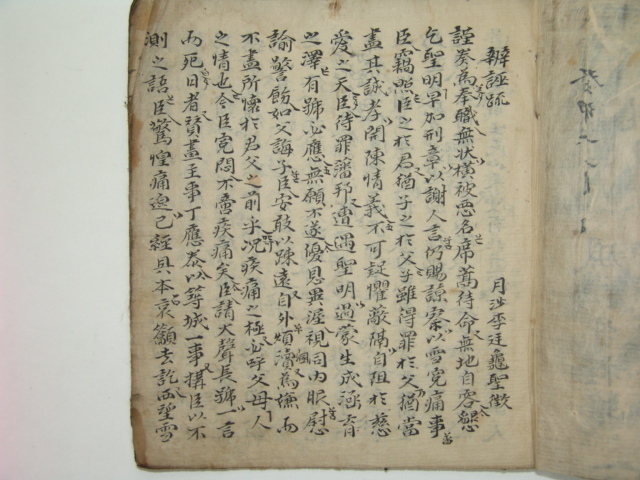 辨誣疏
月沙李廷龜聖徵
謹奏爲奉職無狀橫被惡名席藁待命無地自容懇
乞聖明早加刑章以謝人言仍賜諒察以雪冤痛事
臣竊照臣之於君猶子之於父子雖得罪於父猶當
盡其誠孝開陳情義不可疑懼敵隔自阻於慈
愛之天臣待罪藩邦遭遇聖明過蒙生成涵育
之澤有號必應無願不遂優恩異渥視同內服慰
諭警飭如父誨子臣安敢以疎遠自外煩瀆爲嫌而
不盡所懷於君父之前乎况疾痛之極必呼父母人
之情也今臣冤悶不啻疾痛矣臣請大聲長號一言
而死日者贊畫主事丁應泰以等城一事搆臣以不
測之語臣驚惶痛迫已經具本哀籲去訖西望雪